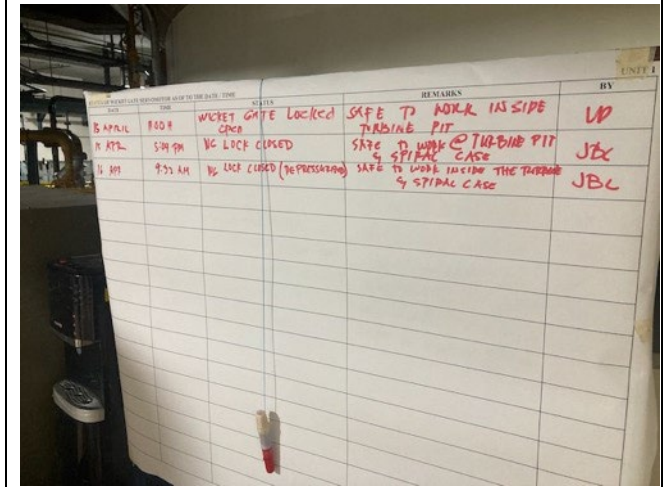 UNIT 1
STATUS OF WICKET GATE SERVOMOTOR AS OF TO THE DATE / TIME
DATE TIME STATUS REMARKS BY
15 APRIL WICKET GATE Locked OPEN SAFE TO WORK INSIDE TURBINE PIT
APR 5:09 PM WG LOCK CLOSED SAFE TO WORK @ TURBINE PIT & SPIRAL CASE
16 APR 9:32 AM WG LOCK CLOSED (DEPRESSURIZED) SAFE TO WORK INSIDE THE TURBINE & SPIRAL CASE JBC